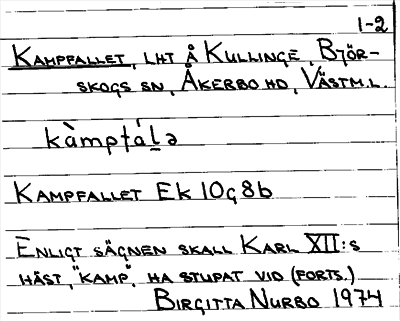 1-2
KAMPFALLET, LHT Å KULLINGE, BJÖR-
SKOGS SN, ÅKERBO HD, VÄSTM.L.
kàmpfálə
KAMPFALLET EK 10g 8b
ENLIGT SÄGNEN SKALL KARL XII:S
HÄST, "KAMP", HA STUPAT VID (FORTS.)
BIRGITTA NURBO 1974